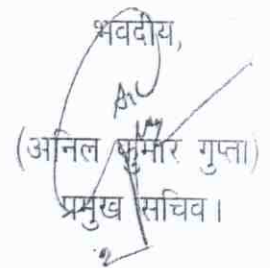 भवदीय,
(अनिल कुमार गुप्ता)
प्रमुख सचिव।